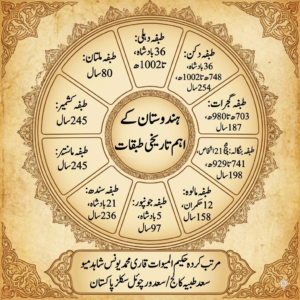 ہندوستان کے
اہم تاریخی طبقات
طبقہ دہلی:
36 بادشاہ،
تا1002ھ
طبقہ دکن:
36 بادشاہ،
748ھ تا1002ھ،
254 سال
طبقہ گجرات:
703ھ تا980ھ،
187 سال
طبقہ بنگالہ:
21 اشخاص،
741 تا929ھ،
198 سال
طبقہ مالوہ:
12 حکمران،
158 سال
طبقہ جونپور:
5 بادشاہ،
97 سال
طبقہ سندھ:
21 بادشاہ،
236 سال
245 سال
طبقہ کشمیر:
245 سال
طبقہ ملتان:
80 سال
مرتب کردہ حکیم المیوات قاری محمد یونس شاہد میو
سعد طبیہ کالج/سعد ورچوئل سکلز پاکستان